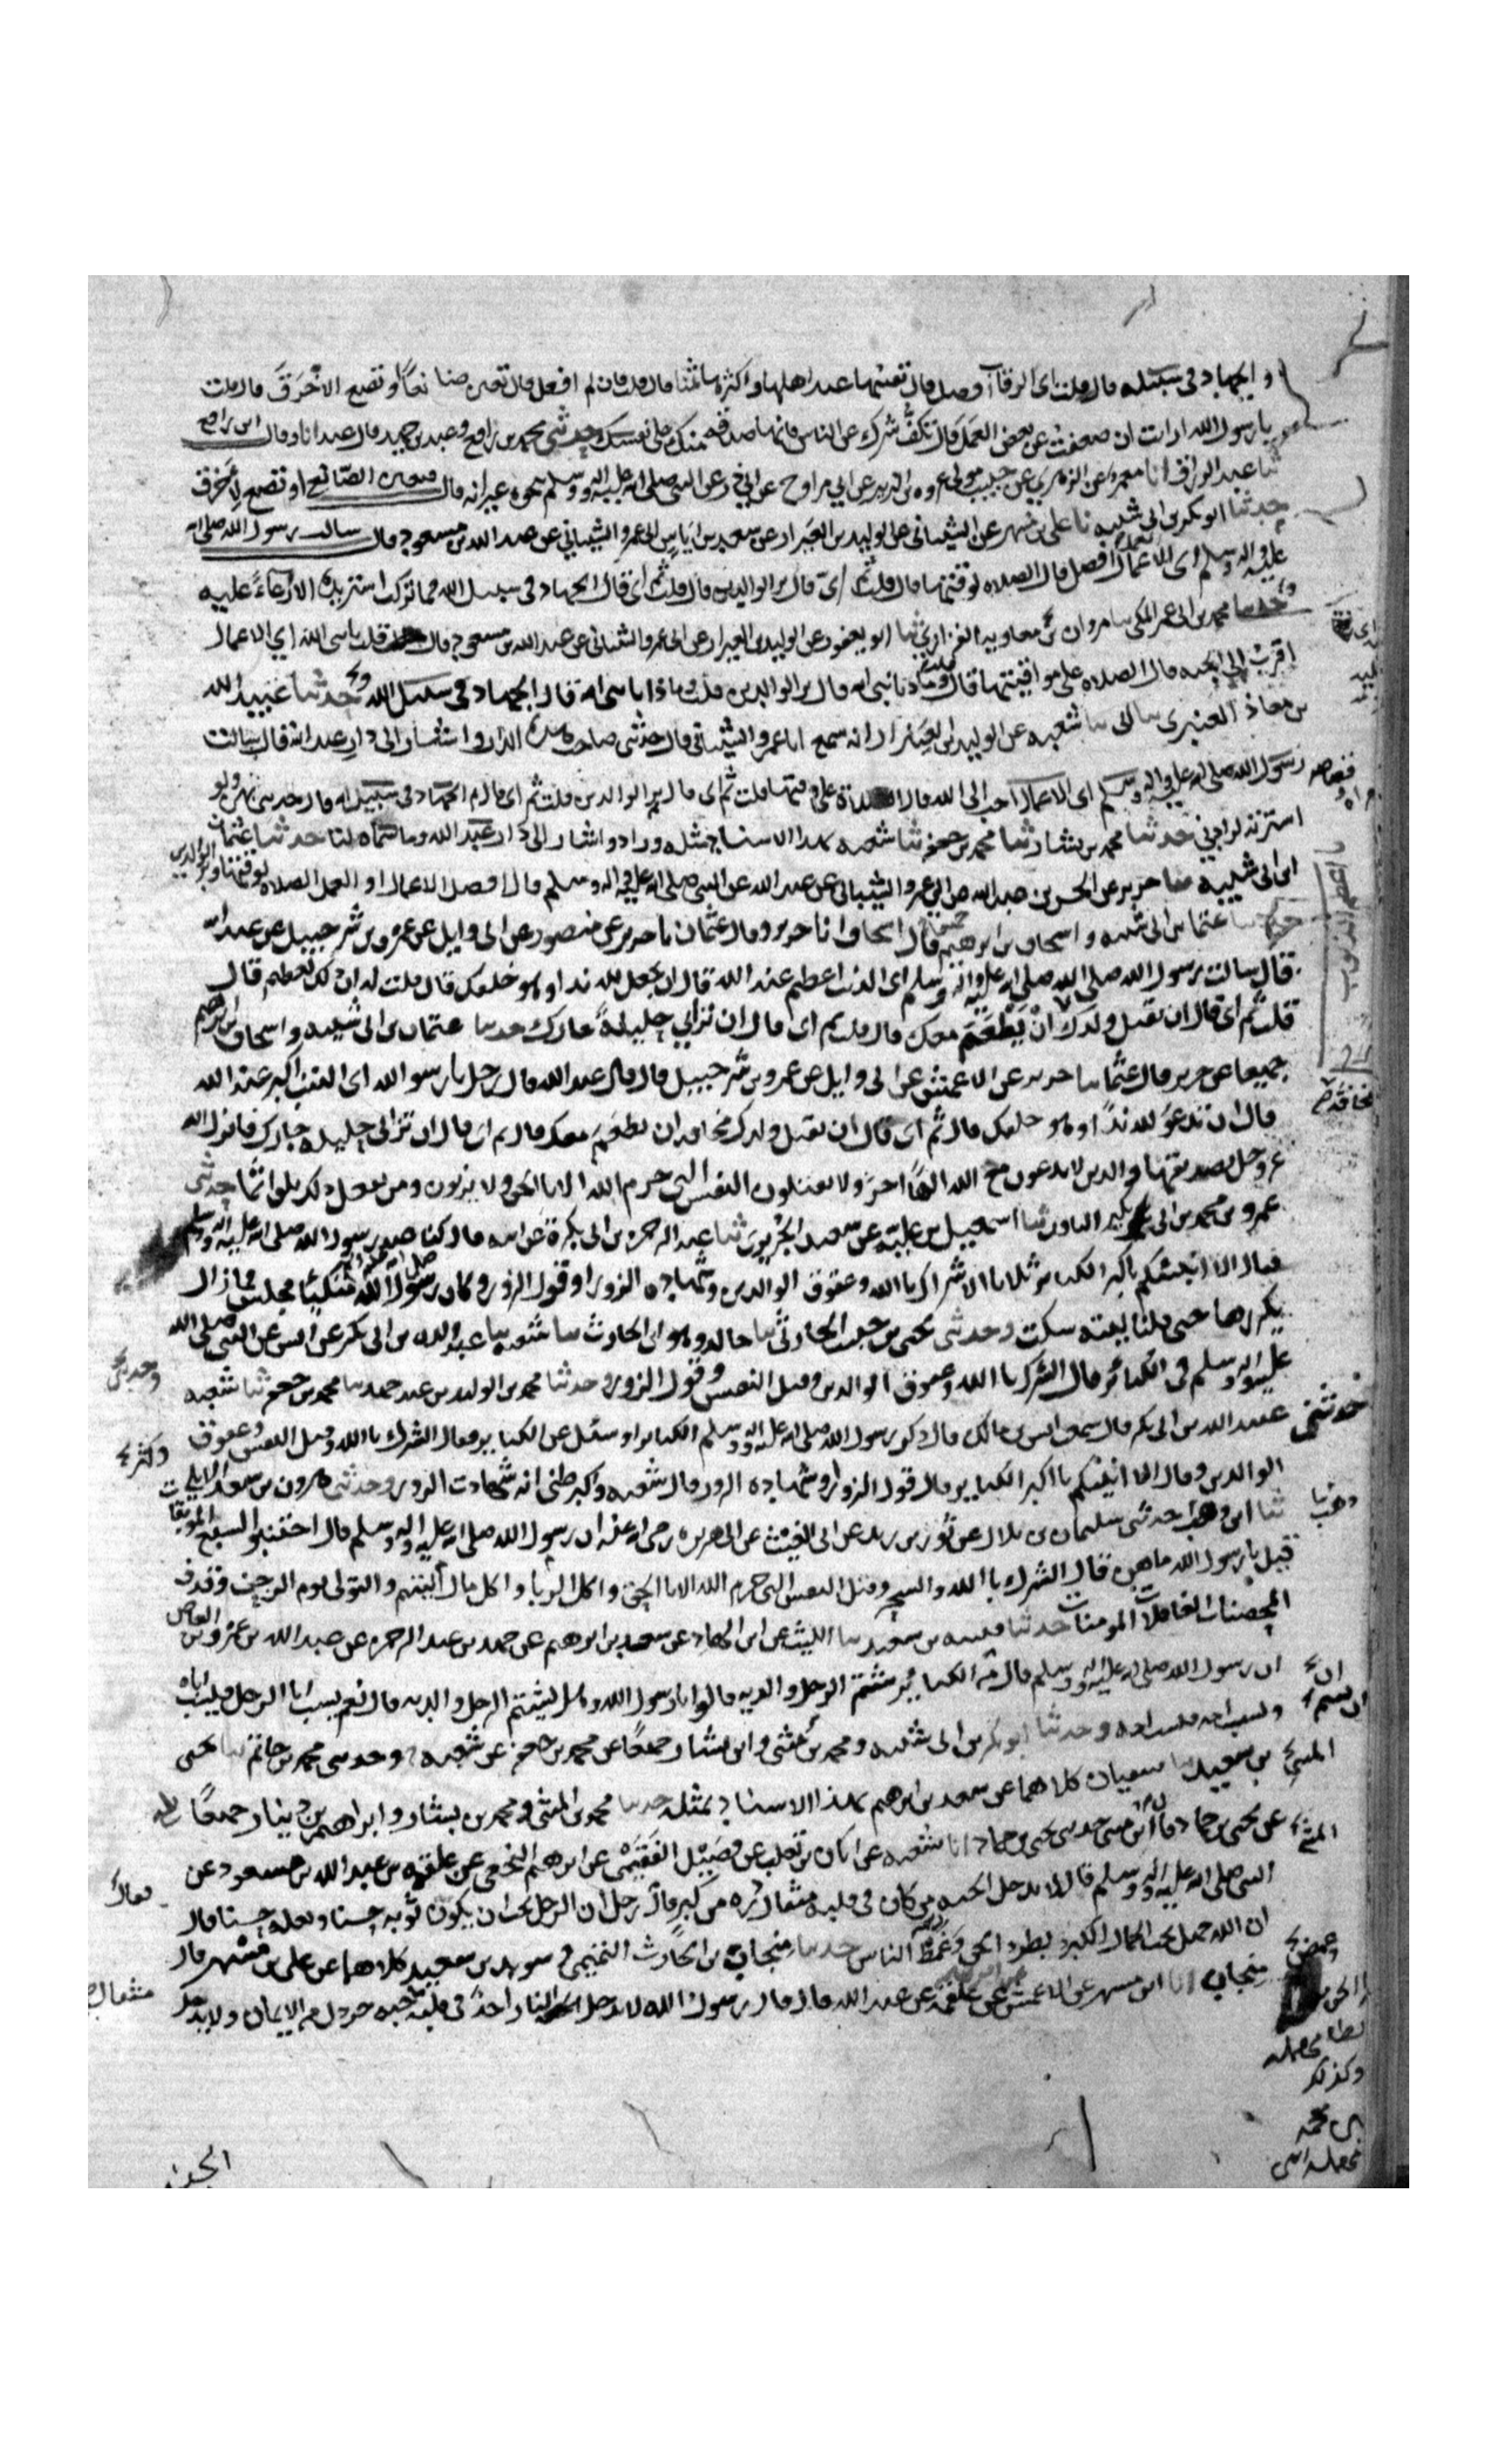 والجهاد في سبيله قال قلت اى الرقاب افضل قال انفسها عند اهلها واكثرها ثمنا قال قلت فان لم افعل قال تعين صانعا او تصنع لاخرق قال قلت
يا رسول الله ارايت ان ضعفت عن بعض العمل قال تكف شرك عن الناس فانها صدقه منك على نفسك حدثني محمد بن رافع وعبد بن حميد قال عبد انا وقال ابن رافع
ثنا عبد الرزاق انا معمر عن الزهري عن حبيب مولى عروه بن الزبير عن ابي مراوح عن ابي ذر عن النبي صلى الله عليه واله وسلم بنحوه غير انه قال فتعين الصانع او تصنع لاخرق
حدثنا ابو بكر بن ابى شيبه نا على بن مسهر عن الشيباني عن الوليد بن العيزار عن سعد بن اياس ابى عمرو الشيباني عن عبد الله بن مسعود قال سالت رسول الله صلى الله
عليه واله وسلم اى الاعمال افضل قال الصلاه لوقتها قال قلت ثم اى قال بر الوالدين قال قلت ثم اى قال الجهاد فى سبيل الله فما تركت استزيده الا ارعاء عليه
وحدثنا محمد بن ابى عمر المكى نا مروان بن معاويه الفزاري ثنا ابو يعفور عن الوليد بن العيزار عن ابى عمرو الشيباني عن عبد الله بن مسعود قال قلت يا نبى الله اي الاعمال
اقرب الى الجنه قال الصلاه على مواقيتها قال قلت وماذا يا نبى الله قال بر الوالدين قلت وماذا يا نبى الله قال الجهاد فى سبيل الله وحدثنا عبيد الله
بن معاذ العنبرى نا ابى نا شعبه عن الوليد بن العيزار انه سمع ابا عمرو الشيبانى قال حدثنى صاحب هذه الدار واشار الى دار عبد الله قال سالت
رسول الله صلى الله عليه واله وسلم اى الاعمال احب الى الله قال الصلاة على وقتها قلت ثم اى قال بر الوالدين قلت ثم اى قال ثم الجهاد فى سبيل الله قال حدثنى بهن ولو
استزدته لزادني حدثنا محمد بن بشار ثنا محمد بن جعفر ثنا شعبه بهذا الاسناد مثله وزاد واشار الى دار عبد الله وما سماه لنا حدثنا عثمان
ابن ابى شيبه نا جرير عن الحسن بن عبيد الله عن ابي عمرو الشيبانى عن عبد الله عن النبى صلى الله عليه واله وسلم قال افضل الاعمال او العمل الصلاه لوقتها وبر الوالدين
حدثنا عثمان بن ابى شيبه واسحاق بن ابرهيم جميعا قال اسحاق انا جرير وقال عثمان نا جرير عن منصور عن ابى وايل عن عمرو بن شرحبيل عن عبد الله
قال سالت رسول الله صلى الله عليه واله وسلم اى الذنب اعظم عند الله قال ان تجعل لله ندا وهو خلقك قال قلت له ان ذلك لعظيم قال
قلت ثم اى قال ان تقتل ولدك ان يطعم معك قال قلت ثم اى قال ان تزانى حليلة جارك حدثنا عثمان بن ابى شيبه واسحاق بن ابرهيم
جميعا عن جرير قال عثمان نا جرير عن الاعمش عن ابى وايل عن عمرو بن شرحبيل قال قال عبد الله قال رجل يا رسول الله اى الذنب اكبر عند الله
قال ان تدعو لله ندا وهو خلقك قال ثم اى قال ان تقتل ولدك مخافه ان يطعم معك قال ثم اى قال ان تزانى حليله جارك فانزل الله
عز وجل تصديقها والذين لا يدعون مع الله الها اخر ولا يقتلون النفس التى حرم الله الا بالحق ولا يزنون ومن يفعل ذلك يلق اثاما حدثنى
عمرو بن محمد بن بكير الناقد ثنا اسمعيل بن عليه عن سعيد الجريرى ثنا عبد الرحمن بن ابى بكرة عن ابيه قال كنا عند رسول الله صلى الله عليه واله وسلم
فقال الا انبئكم باكبر الكبائر ثلاثا الاشراك بالله وعقوق الوالدين وشهاده الزور او قول الزور وكان رسول الله متكئا فجلس فما زال
يكررها حتى قلنا ليته سكت وحدثنى يحيى بن حبيب الحارثى نا خالد وهو ابن الحارث نا شعبه نا عبيد الله بن ابى بكر عن انس عن النبى صلى الله
عليه واله وسلم فى الكبائر قال الشرك بالله وعقوق الوالدين وقتل النفس وقول الزور وحدثنا محمد بن الوليد بن عبد الحميد نا محمد بن جعفر ثنا شعبه
حدثنى عبيد الله بن ابى بكر قال سمعت انس بن مالك قال ذكر رسول الله صلى الله عليه واله وسلم الكبائر او سئل عن الكبائر فقال الشرك بالله وقتل النفس وعقوق
الوالدين وقال الا انبئكم باكبر الكباير قال قول الزور او شهاده الزور قال شعبه واكبر ظنى انه شهادت الزور وحدثنى هارون بن سعيد الايلى
ثنا ابن وهب حدثنى سليمان بن بلال عن ثور بن زيد عن ابى الغيث عن ابى هريره رضى الله عنه ان رسول الله صلى الله عليه واله وسلم قال اجتنبوا السبع الموبقات
قيل يا رسول الله ما هن قال الشرك بالله والسحر وقتل النفس التى حرم الله الا بالحق واكل الربا واكل مال اليتيم والتولى يوم الزحف وقذف
المحصنات الغافلات المومنات حدثنا قتيبه بن سعيد نا الليث عن ابن الهاد عن سعد بن ابرهيم عن حميد بن عبد الرحمن عن عبد الله بن عمرو بن العاص
ان رسول الله صلى الله عليه واله وسلم قال من الكباير شتم الرجل والديه قالوا يا رسول الله وهل يشتم الرجل والديه قال نعم يسب ابا الرجل فيسب اباه
ويسب امه فيسب امه وحدثنا ابو بكر بن ابى شيبه ومحمد بن مثنى وابن بشار جميعا عن محمد بن جعفر عن شعبه وحدثنى محمد بن حاتم نا يحيى
بن سعيد نا سفيان كلاهما عن سعد بن ابرهيم بهذا الاسناد مثله حدثنا محمد بن المثنى ومحمد بن بشار وابراهيم بن دينار جميعا
عن يحيى بن حماد قال ابن مثنى حدثنى يحيى بن حماد انا شعبه عن ابان بن تغلب عن فضيل الفقيمى عن ابرهيم النخعى عن علقمه عن عبد الله بن مسعود عن
النبى صلى الله عليه واله وسلم قال لا يدخل الجنه من كان فى قلبه مثقال ذره من كبر قال رجل ان الرجل يحب ان يكون ثوبه حسنا ونعله حسنا قال
ان الله جميل يحب الجمال الكبر بطر الحق وغمط الناس حدثنا منجاب بن الحارث التميمى وسويد بن سعيد كلاهما عن على بن مسهر قال
منجاب انا ابن مسهر عن الاعمش عن علقمه عن عبد الله قال قال رسول الله لا يدخل النار احد فى قلبه حبه خردل من الايمان ولا يدخل
الجنه